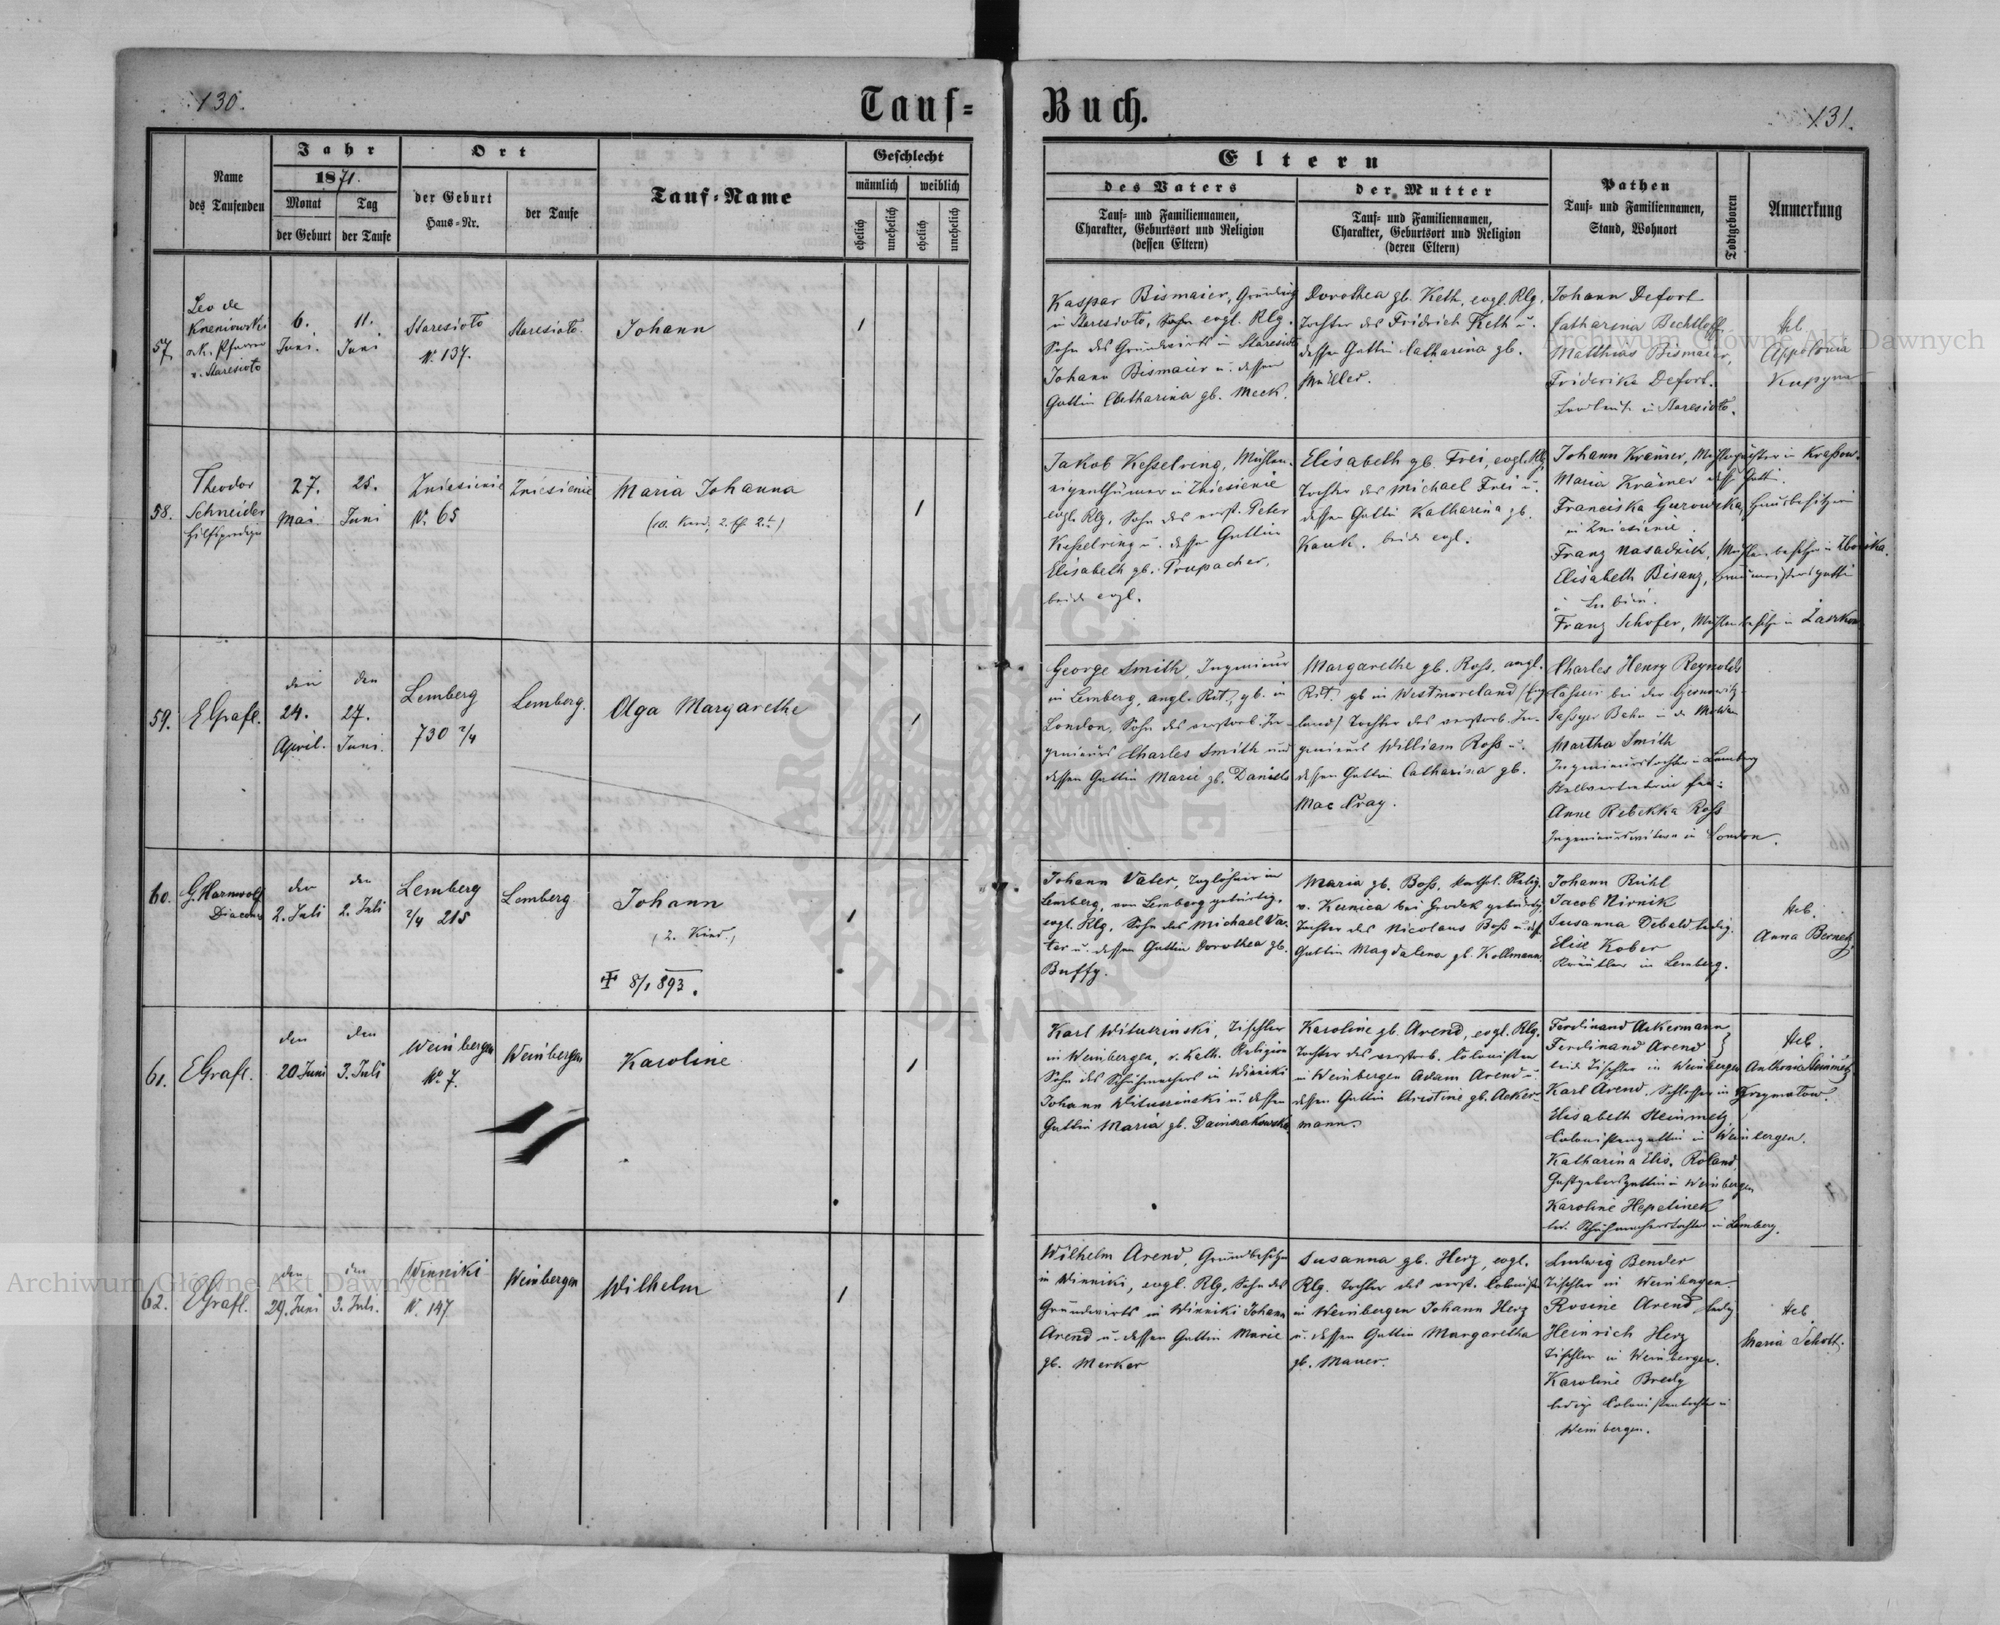 130.
Tauf-
Buch.
131.
Name
des Taufenden
Jahr
1871.
Monat
der Geburt
Tag
der Taufe
Ort
der Geburt
Haus-Nr.
der Taufe
Tauf-Name
Geschlecht
männlich
weiblich
ehelich
unehelich
ehelich
unehelich
Eltern
des Vaters
Tauf- und Familiennamen,
Charakter, Geburtsort und Religion
(dessen Eltern)
der Mutter
Tauf- und Familiennamen,
Charakter, Geburtsort und Religion
(deren Eltern)
Pathen
Tauf- und Familiennamen,
Stand, Wohnort
Todtgeboren
Anmerkung
57.
Leo de
Kneniowski
v. Staresioto
6.
Juni.
11.
Juni
Staresioto
N. 137.
Staresioto.
Johann
1
Kaspar Bismaier,
in Staresioto, Sohn evgl. Rlg.
Sohn des Grundwirts in Staresioto
Johann Bismaier u. dessen
Gattin Catharina gb. Meck.
Dorothea gb. Keth, evgl. Rlg.
Tochter des Fridrich Keth u.
dessen Gattin Catharina gb.
Müller.
Johann Defort
Catharina Bechtloff
Matthias Bismaier,
Friderika Defort.
in Staresioto.
Heb.
Appolonia
Kupyna
58.
Theodor
Schneider
Hilfspredigr
27.
Mai
25.
Juni
Zniesienie
N. 65
Zniesienie
Maria Johanna
1
Jakob Kesselring, Mühlen-
eigenthümer in Zniesienie
evgl. Rlg, Sohn des verst. Peter
Kesselring u. dessen Gattin
Elisabeth gb. Trupacher,
beide evgl.
Elisabeth gb. Frei, evgl. Rlg
Tochter des Michael Frei u.
dessen Gattin Katharina gb.
Kauk. beide evgl.
Johann Krämer, Mühlpächter in Krassow.
Maria Krämer dess. Gattin.
Franciska Gurowska, Hausbesitzerin
in Zniesienie
Franz Nasadnik, Mühlenbesitzer in
Elisabeth Bisanz, Baumeistersgattin
in Lubin.
Franz Schofer, Mühlenbesitzer in Laszkow
59.
EGrafl.
den
24.
April.
den
27.
Juni.
Lemberg
730 2/4
Lemberg.
Olga Margarethe
1
George Smith, Ingenieur
in Lemberg, angl. Rit., gb. in
London, Sohn des verstorb. In-
genieurs Charles Smith und
dessen Gattin Marie gb. Daniels
Margarethe gb. Ross. angl.
Rit. gb in Westmoreland (Eng-
land) Tochter des verstorb. In-
genieurs William Ross u.
dessen Gattin Catharina gb.
Mac Cray.
Charles Henry Reynolds
Cassier bei der Czernowitz-
Jassyer Bahn in der Moldau
Martha Smith
Ingenieurstochter in Lemberg
Stellvertreterin für:
Anne Rebekka Ross
Ingenieurswitwe in London.
60.
G. Harnwolf
Diacon
den
2. Juli
den
2. Juli
Lemberg
2/4 215
Lemberg.
Johann
(2. Kind.)
✝ 8/1 893.
1
Johann Vater, Taglöhner in
Lemberg, von Lemberg gebürtig,
evgl. Rlg, Sohn des Michael Va-
ter u. dessen Gattin Dorothea gb.
Buffy.
Maria gb. Boss. kathol. Relig.
v. Kunica bei Grodek gebürtig
Tochter des Nicolaus Boss u. dess
Gattin Magdalena gb. Kollmann
Johann Rühl
Jacob Nirnik
Susanna Debald ledig.
Elise Kober
in Lemberg.
Heb.
Anna Bernetz.
61.
EGrafl.
den
20. Juni
den
3. Juli
Weinbergen
N. 7.
Weinbergen
Karoline
1
Karl Wituszinski, Tischler
in Weinbergen, r. kath. Religion
Sohn des Schuhmachers in Winniki
Johann Wituszinski u. dessen
Gattin Maria gb. Dainzakowska
Karoline gb. Arend, evgl. Rlg.
Tochter des verstorb. Colonisten
in Weinbergen Adam Arend u.
dessen Gattin Christine gb. Acker-
mann.
Ferdinand Ackermann
Ferdinand Arend
beide Tischler in Weinbergen
Karl Arend, Schlosser in Grzymatow.
Elisabeth Steinmetz
Colonistengattin in Weinbergen.
Katharina Elis. Roland,
Gastgebersgattin in Weinbergen
Karoline Hepelinek
led. Schuhmacherstochter in Lemberg.
Heb.
Anthonia Steinmetz
62.
EGrafl.
den
29. Juni
den
3. Juli.
Winniki
N. 147
Weinbergen
Wilhelm
1
Wilhelm Arend, Grundbesitzer
in Winniki, evgl. Rlg, Sohn des
Grundwirts in Winniki Johann
Arend u. dessen Gattin Marie
gb. Merker
Susanna gb. Herz, evgl.
Rlg. Tochter des verst. Colonisten
in Weinbergen Johann Herz
u. dessen Gattin Margaretha
gb. Mauer.
Ludwig Bender
Tischler in Weinbergen
Rosine Arend ledig
Heinrich Herz
Tischler in Weinbergen.
Karoline Bredy
ledige Colonistentochter in
Weinbergen.
Heb.
Maria Schott.
Archiwum Główne Akt Dawnych
Archiwum Główne Akt Dawnych
ARCHIWUM GŁÓWNE AKT DAWNYCH